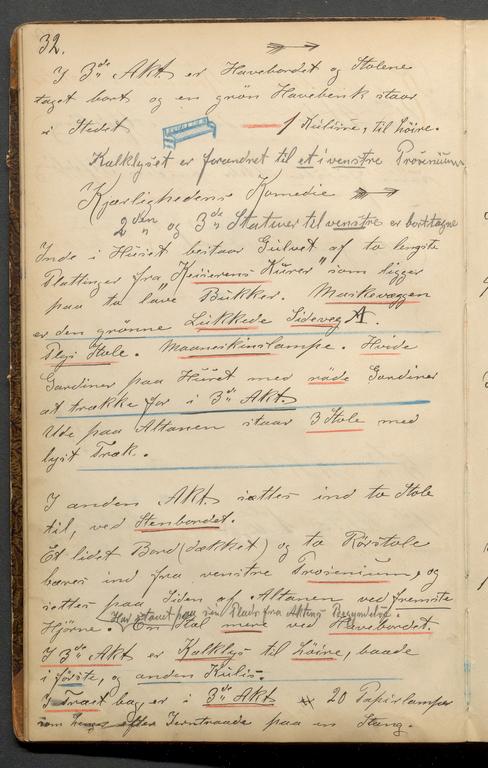 32.
I 3die Akt er Havebordet og Stolene
taget bort og en grøn Havebenk staar
i Stedet 1 Kulisse, til höire.
Kalklyset er forandret til et i venstre Prosenium
Kjærlighedens Komedie
2den og 3die Statuer til venstre er borttagne
Inde i Huset bestaar Gulvet af to lengste
Plattinger fra "Keiserens Kurer" som ligger
paa to lave Bukker. Maskevæggen
er den grønne Lukkede Sidevæg A.
Plys Stole. Maaneskinslampe. Hvide
Gardiner paa Huset med røde Gardiner
at trække for i 3die Akt.
Ude paa Altanen staar 3 Stole med
lyst Træk.
I anden Akt sættes ind to Stole
til, ved Stenbordet.
Et lidet Bord (dækket) og to Rørstole
bæres ind fra venstre Prosenium, og
sættes paa Siden af Altanen ved fremste
Har staaet paa sin Plads fra Aktens Begyndelse.
Hjørne. En Stol mere ved Havebordet.
I 3die Akt er Kalklys til höire, baade
i første, og anden Kulis.
I Træet bag er i 3die Akt 20 Papirlamper
som efter Jerntraade paa en Stang.